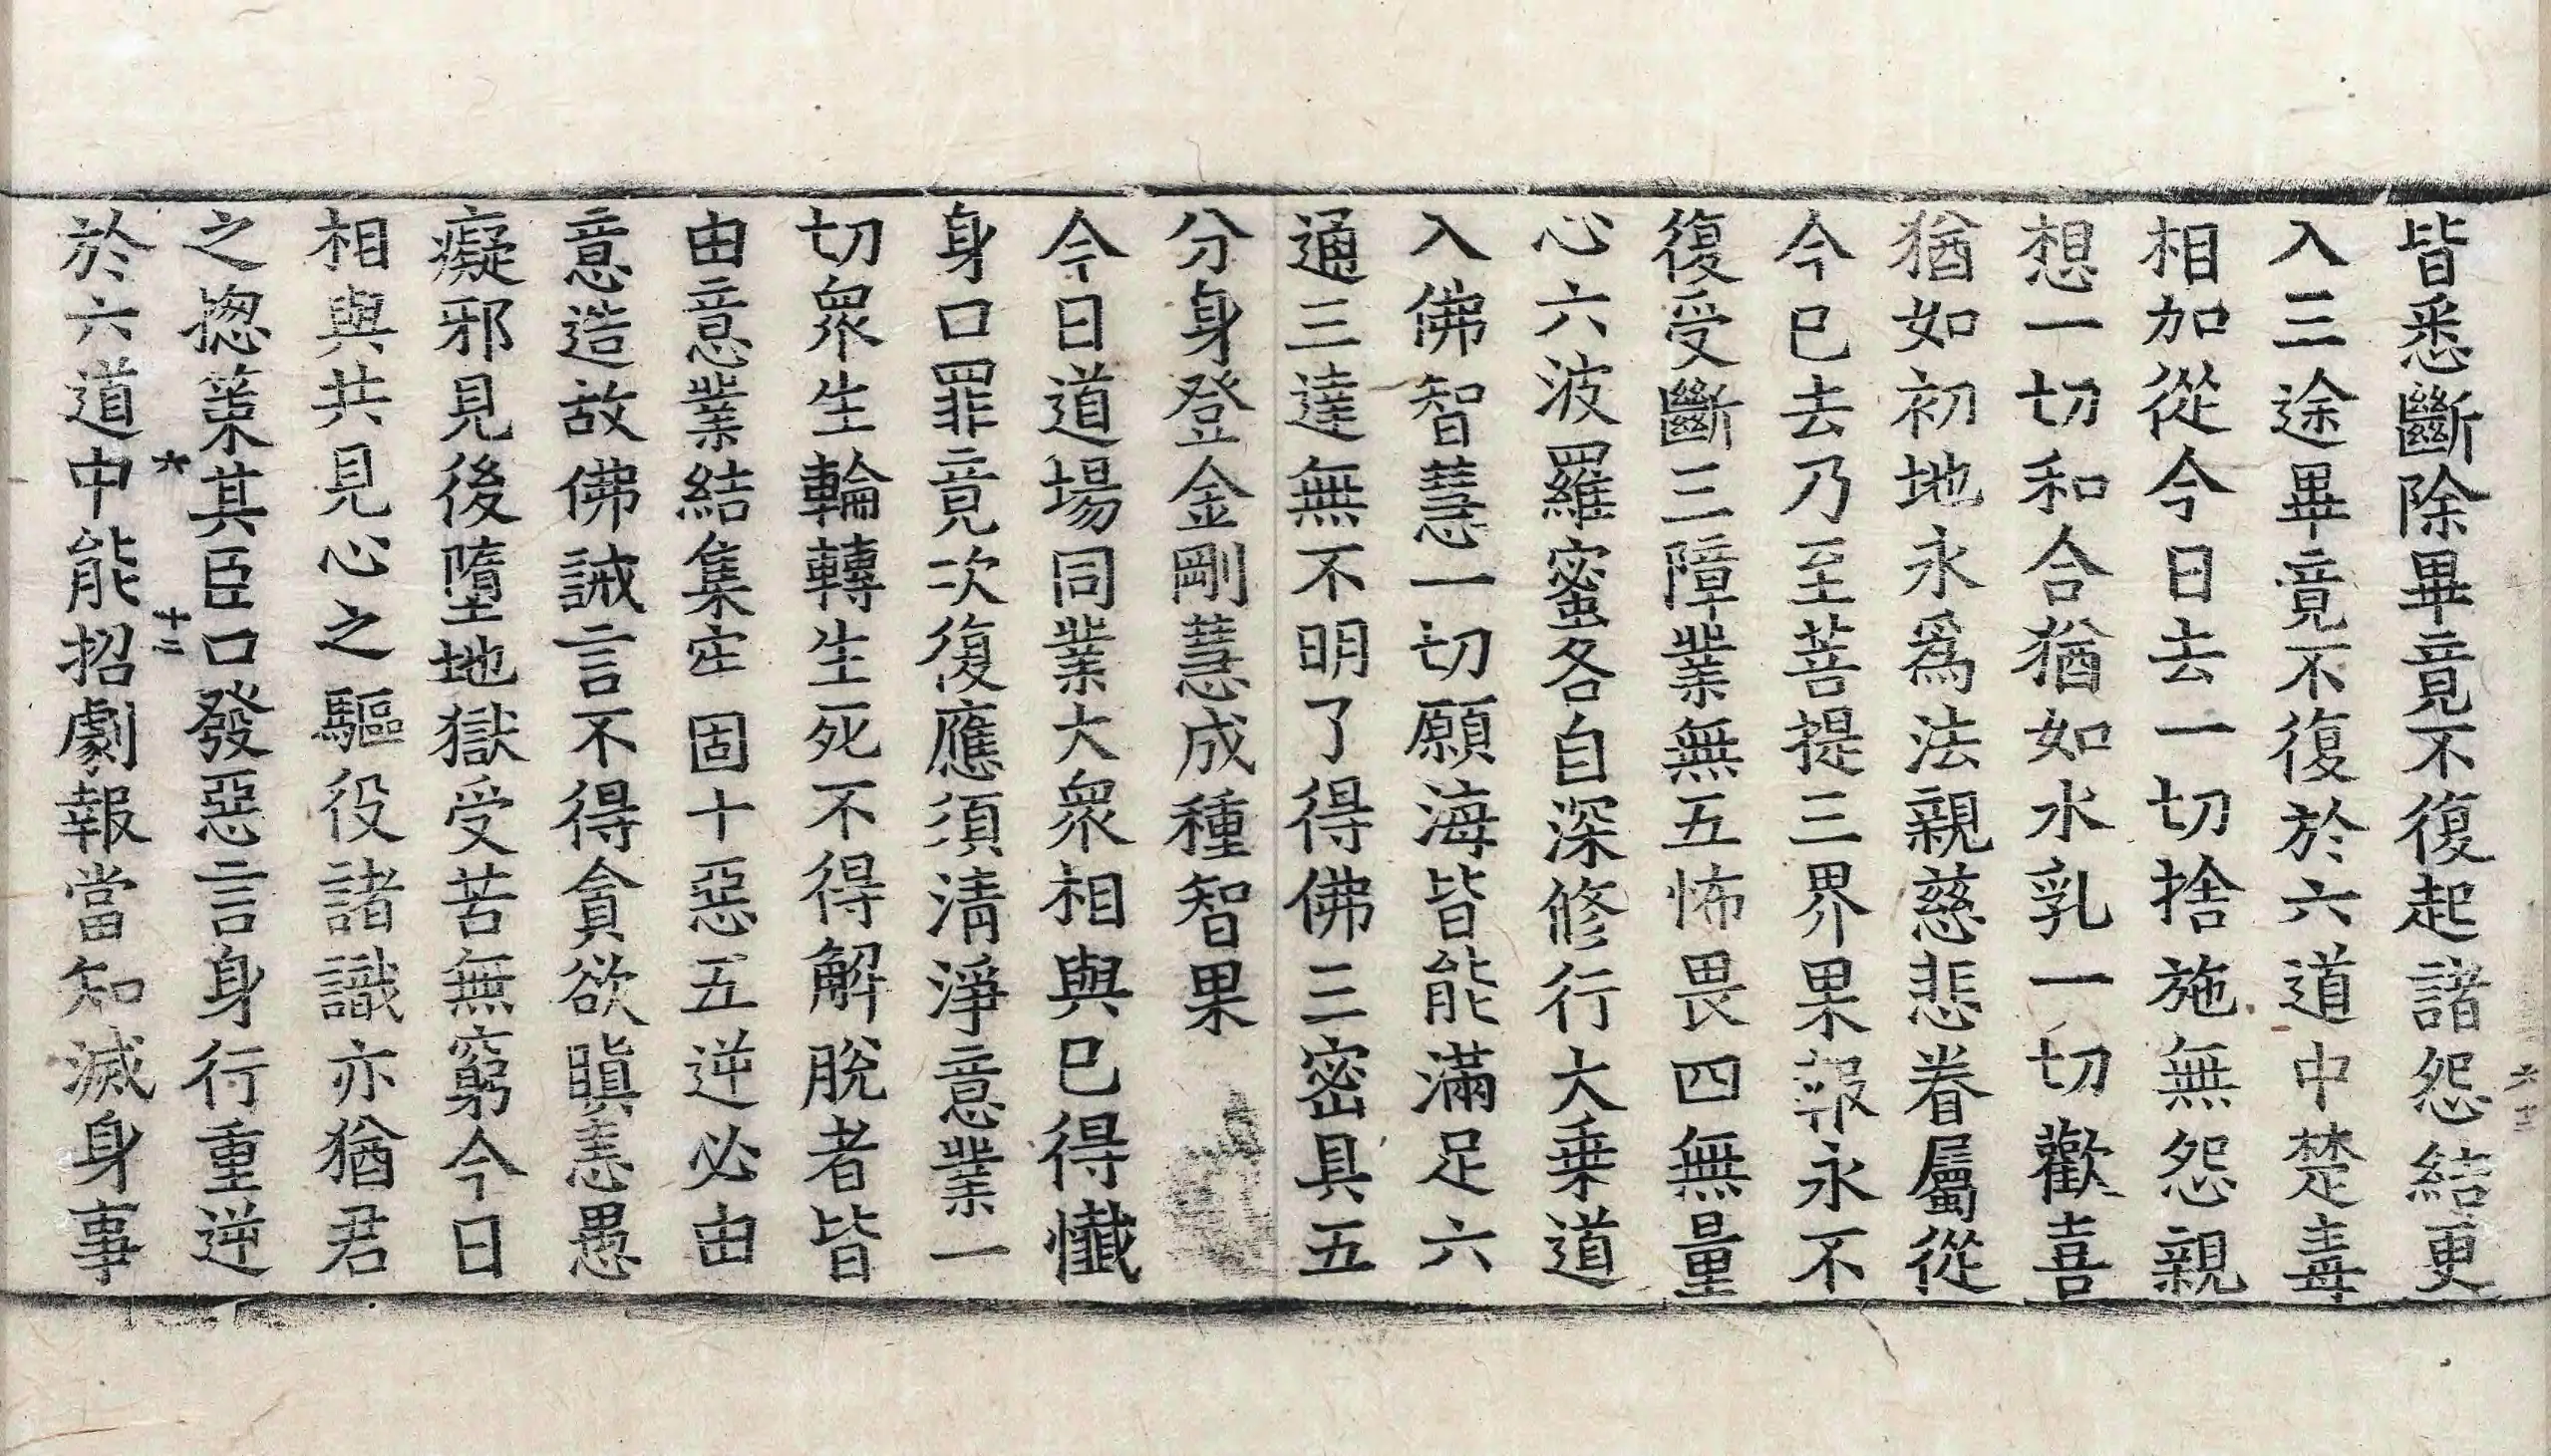 皆悉斷除畢竟不復起諸怨結更
入三途畢竟不復於六道中楚毒
相加從今日去一切捨施無怨親
想一切和合猶如水乳一切歡喜
猶如初地永爲法親慈悲眷屬從
今已去乃至菩提三界果報永不
復受斷三障業無五怖畏四無量
心六波羅蜜各自深修行大乗道
入佛智慧一切願海皆能滿足六
通三達無不明了得佛三密具五
分身登金剛慧成種智果
今日道場同業大衆相與已得懺
身口罪竟次復應須清淨意業一
切衆生輪轉生死不得解脫者皆
由意業結集牢固十惡五逆必由
意造故佛誡言不得貪欲瞋恚愚
癡邪見後墮地獄受苦無窮今日
相與共見心之驅役諸識亦猶君
之揔策其臣口發惡言身行重逆
六 十三
於六道中能招劇報當知滅身事